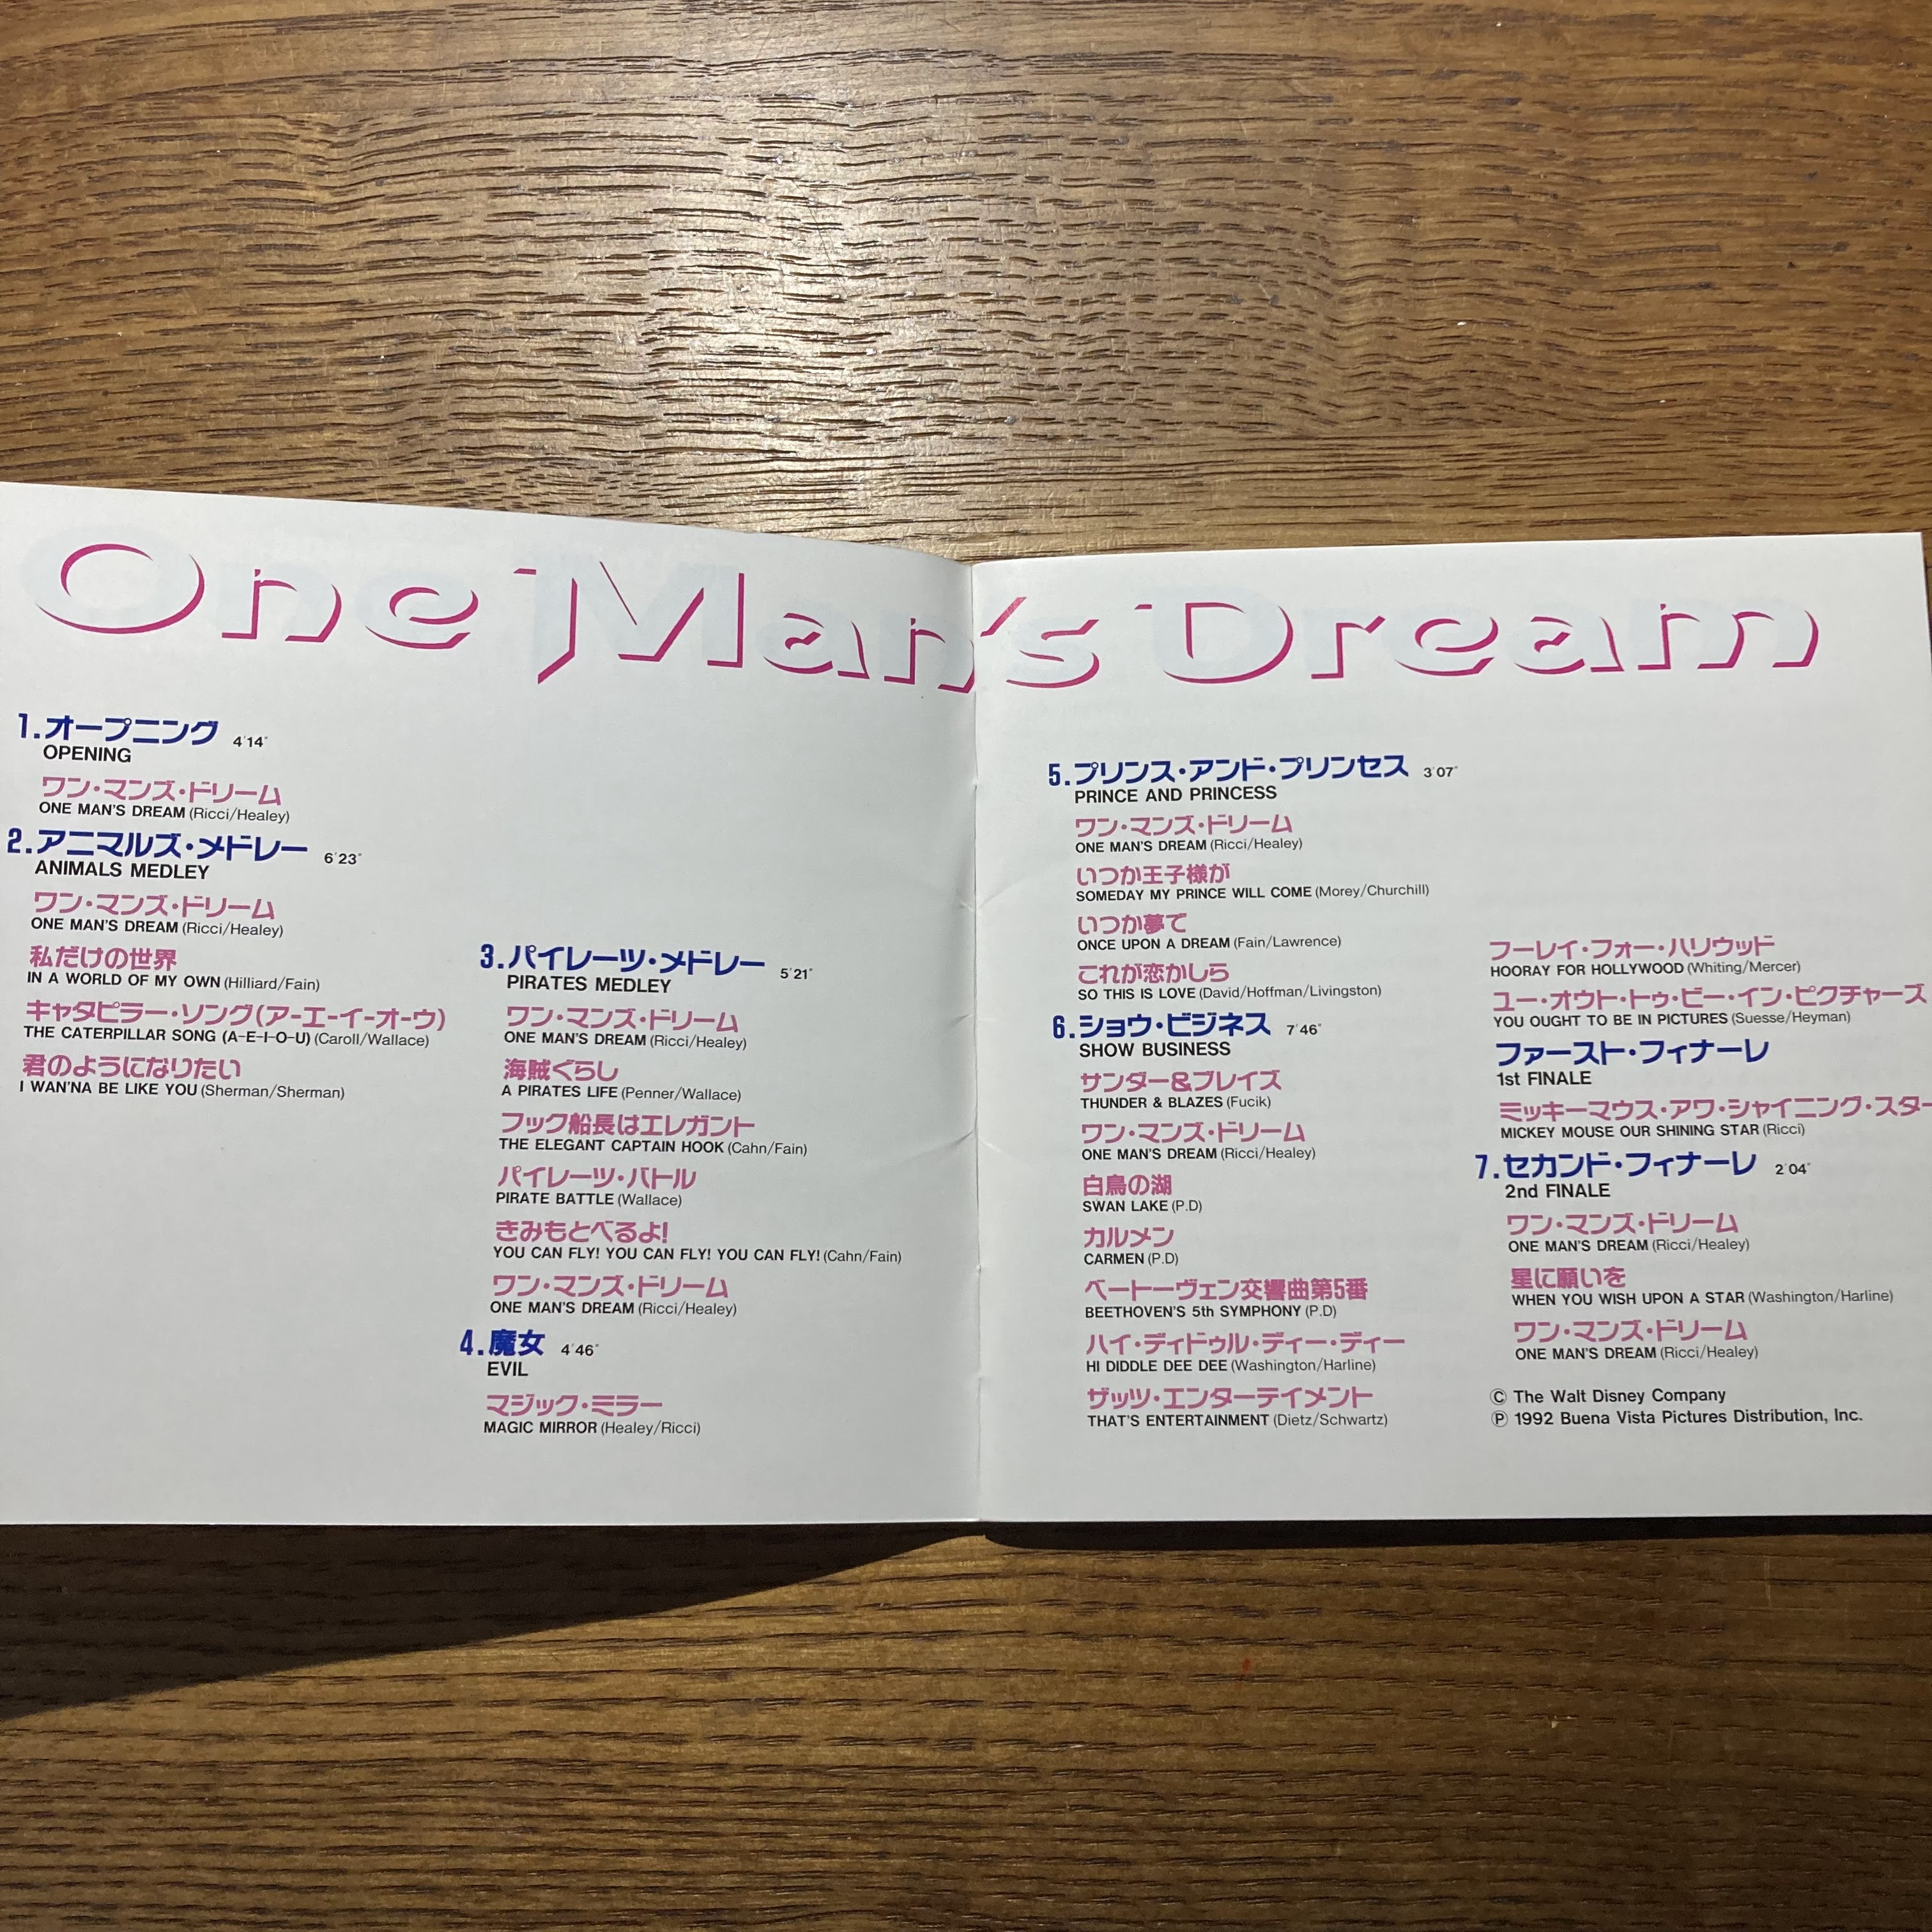 One Man's Dream
1.オープニング 4'14"
OPENING
ワン・マンズ・ドリーム
ONE MAN'S DREAM (Ricci/Healey)
2.アニマルズ・メドレー 6'23"
ANIMALS MEDLEY
ワン・マンズ・ドリーム
ONE MAN'S DREAM (Ricci/Healey)
私だけの世界
IN A WORLD OF MY OWN (Hilliard/Fain)
キャタピラー・ソング(ア-エ-イ-オ-ウ)
THE CATERPILLAR SONG (A-E-I-O-U) (Caroll/Wallace)
君のようになりたい
I WAN'NA BE LIKE YOU (Sherman/Sherman)
3.パイレーツ・メドレー 5'21"
PIRATES MEDLEY
ワン・マンズ・ドリーム
ONE MAN'S DREAM (Ricci/Healey)
海賊ぐらし
A PIRATES LIFE (Penner/Wallace)
フック船長はエレガント
THE ELEGANT CAPTAIN HOOK (Cahn/Fain)
パイレーツ・バトル
PIRATE BATTLE (Wallace)
きみもとべるよ!
YOU CAN FLY! YOU CAN FLY! YOU CAN FLY! (Cahn/Fain)
ワン・マンズ・ドリーム
ONE MAN'S DREAM (Ricci/Healey)
4.魔女 4'46"
EVIL
マジック・ミラー
MAGIC MIRROR (Healey/Ricci)
5.プリンス・アンド・プリンセス 3'07"
PRINCE AND PRINCESS
ワン・マンズ・ドリーム
ONE MAN'S DREAM (Ricci/Healey)
いつか王子様が
SOMEDAY MY PRINCE WILL COME (Morey/Churchill)
いつか夢で
ONCE UPON A DREAM (Fain/Lawrence)
これが恋かしら
SO THIS IS LOVE (David/Hoffman/Livingston)
6.ショウ・ビジネス 7'46"
SHOW BUSINESS
サンダー&ブレイズ
THUNDER & BLAZES (Fucik)
ワン・マンズ・ドリーム
ONE MAN'S DREAM (Ricci/Healey)
白鳥の湖
SWAN LAKE (P.D)
カルメン
CARMEN (P.D)
ベートーヴェン交響曲第5番
BEETHOVEN'S 5th SYMPHONY (P.D)
ハイ・ディドゥル・ディー・ディー
HI DIDDLE DEE DEE (Washington/Harline)
ザッツ・エンターテイメント
THAT'S ENTERTAINMENT (Dietz/Schwartz)
フーレイ・フォー・ハリウッド
HOORAY FOR HOLLYWOOD (Whiting/Mercer)
ユー・オウト・トゥ・ビー・イン・ピクチャーズ
YOU OUGHT TO BE IN PICTURES (Suesse/Heyman)
ファースト・フィナーレ
1st FINALE
ミッキーマウス・アワ・シャイニング・スター
MICKEY MOUSE OUR SHINING STAR (Ricci)
7.セカンド・フィナーレ 2'04"
2nd FINALE
ワン・マンズ・ドリーム
ONE MAN'S DREAM (Ricci/Healey)
星に願いを
WHEN YOU WISH UPON A STAR (Washington/Harline)
ワン・マンズ・ドリーム
ONE MAN'S DREAM (Ricci/Healey)
Ⓒ The Walt Disney Company
Ⓟ 1992 Buena Vista Pictures Distribution, Inc.